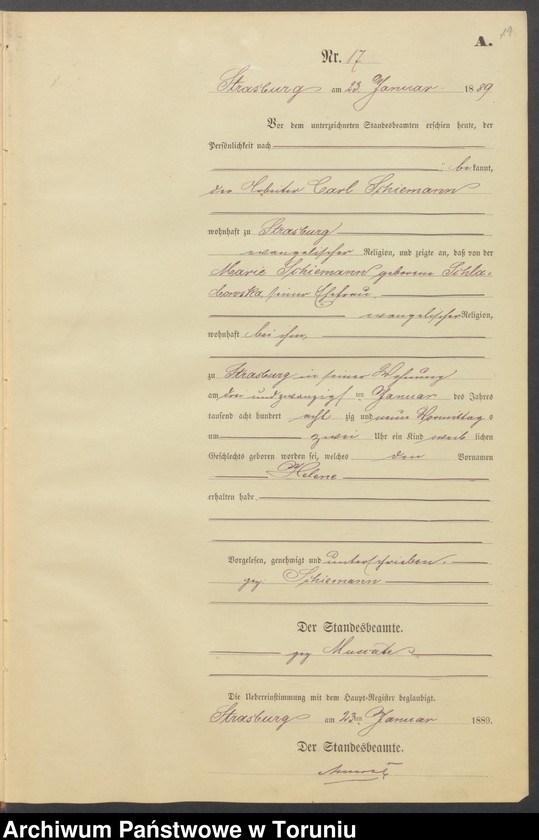 19
A.
Nr. 17
Strasburg am 23. Januar 1889
Vor dem unterzeichneten Standesbeamten erschien heute, der
Persönlichkeit nach
bekannt,
der Arbeiter Carl Schiemann
wohnhaft zu Strasburg
evangelischer Religion, und zeigte an, daß von der
Marie Schiemann geborene Schla-
seiner Ehefrau
evangelischer Religion,
wohnhaft bei ihm,
zu Strasburg in seiner Wohnung
am drei und zwanzigsten Januar des Jahres
tausend acht hundert acht zig und neun Vormittags
um zwei Uhr ein Kind weiblichen
Geschlechts geboren worden sei, welches den Vornamen
Helene
erhalten habe.
Vorgelesen, genehmigt und unterschrieben.
gez. Schiemann
Der Standesbeamte.
gez
Die Uebereinstimmung mit dem Haupt-Register beglaubigt.
Strasburg am 23ten Januar 1889.
Der Standesbeamte.
Archiwum Państwowe w Toruniu